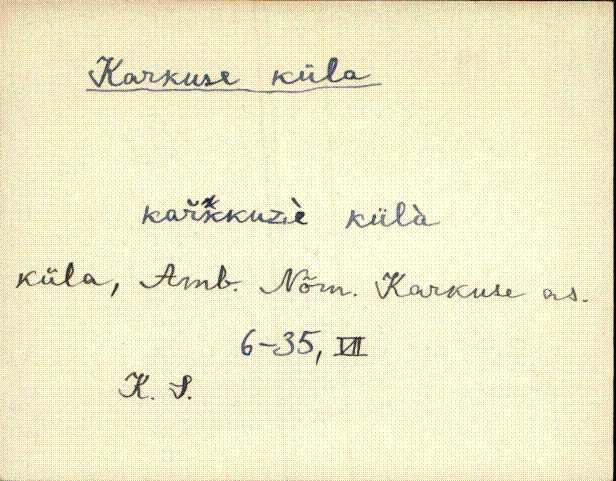 Karkuse küla
kaŕkkuziè külà
küla, Amb. Nõm. Karkuse as.
6-35, VII
K. S.